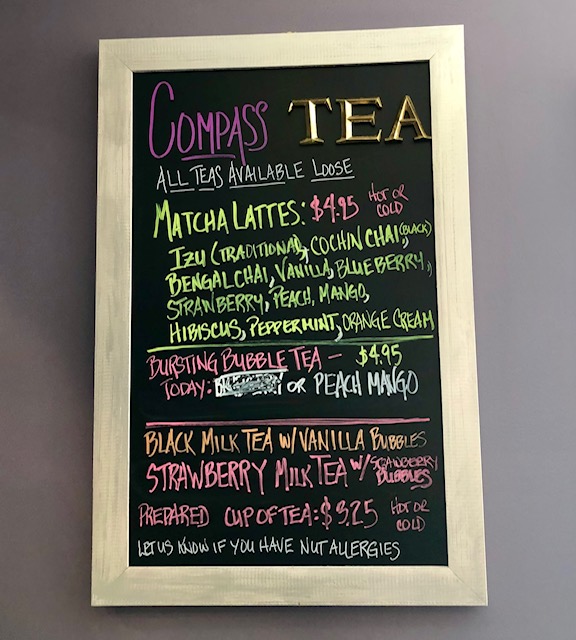 COMPASS TEA
ALL TEAS AVAILABLE LOOSE
MATCHA LATTES: $4.95 HOT OR COLD
IZU (TRADITIONAL), COCHIN CHAI (BLACK),
BENGAL CHAI, VANILLA, BLUEBERRY,
STRAWBERRY, PEACH, MANGO,
HIBISCUS, PEPPERMINT, ORANGE CREAM
BURSTING BUBBLE TEA - $4.95
TODAY: OR PEACH MANGO
BLACK MILK TEA W/ VANILLA BUBBLES
STRAWBERRY MILK TEA W/ STRAWBERRY BUBBLES
PREPARED CUP OF TEA: $3.25 HOT OR COLD
LET US KNOW IF YOU HAVE NUT ALLERGIES